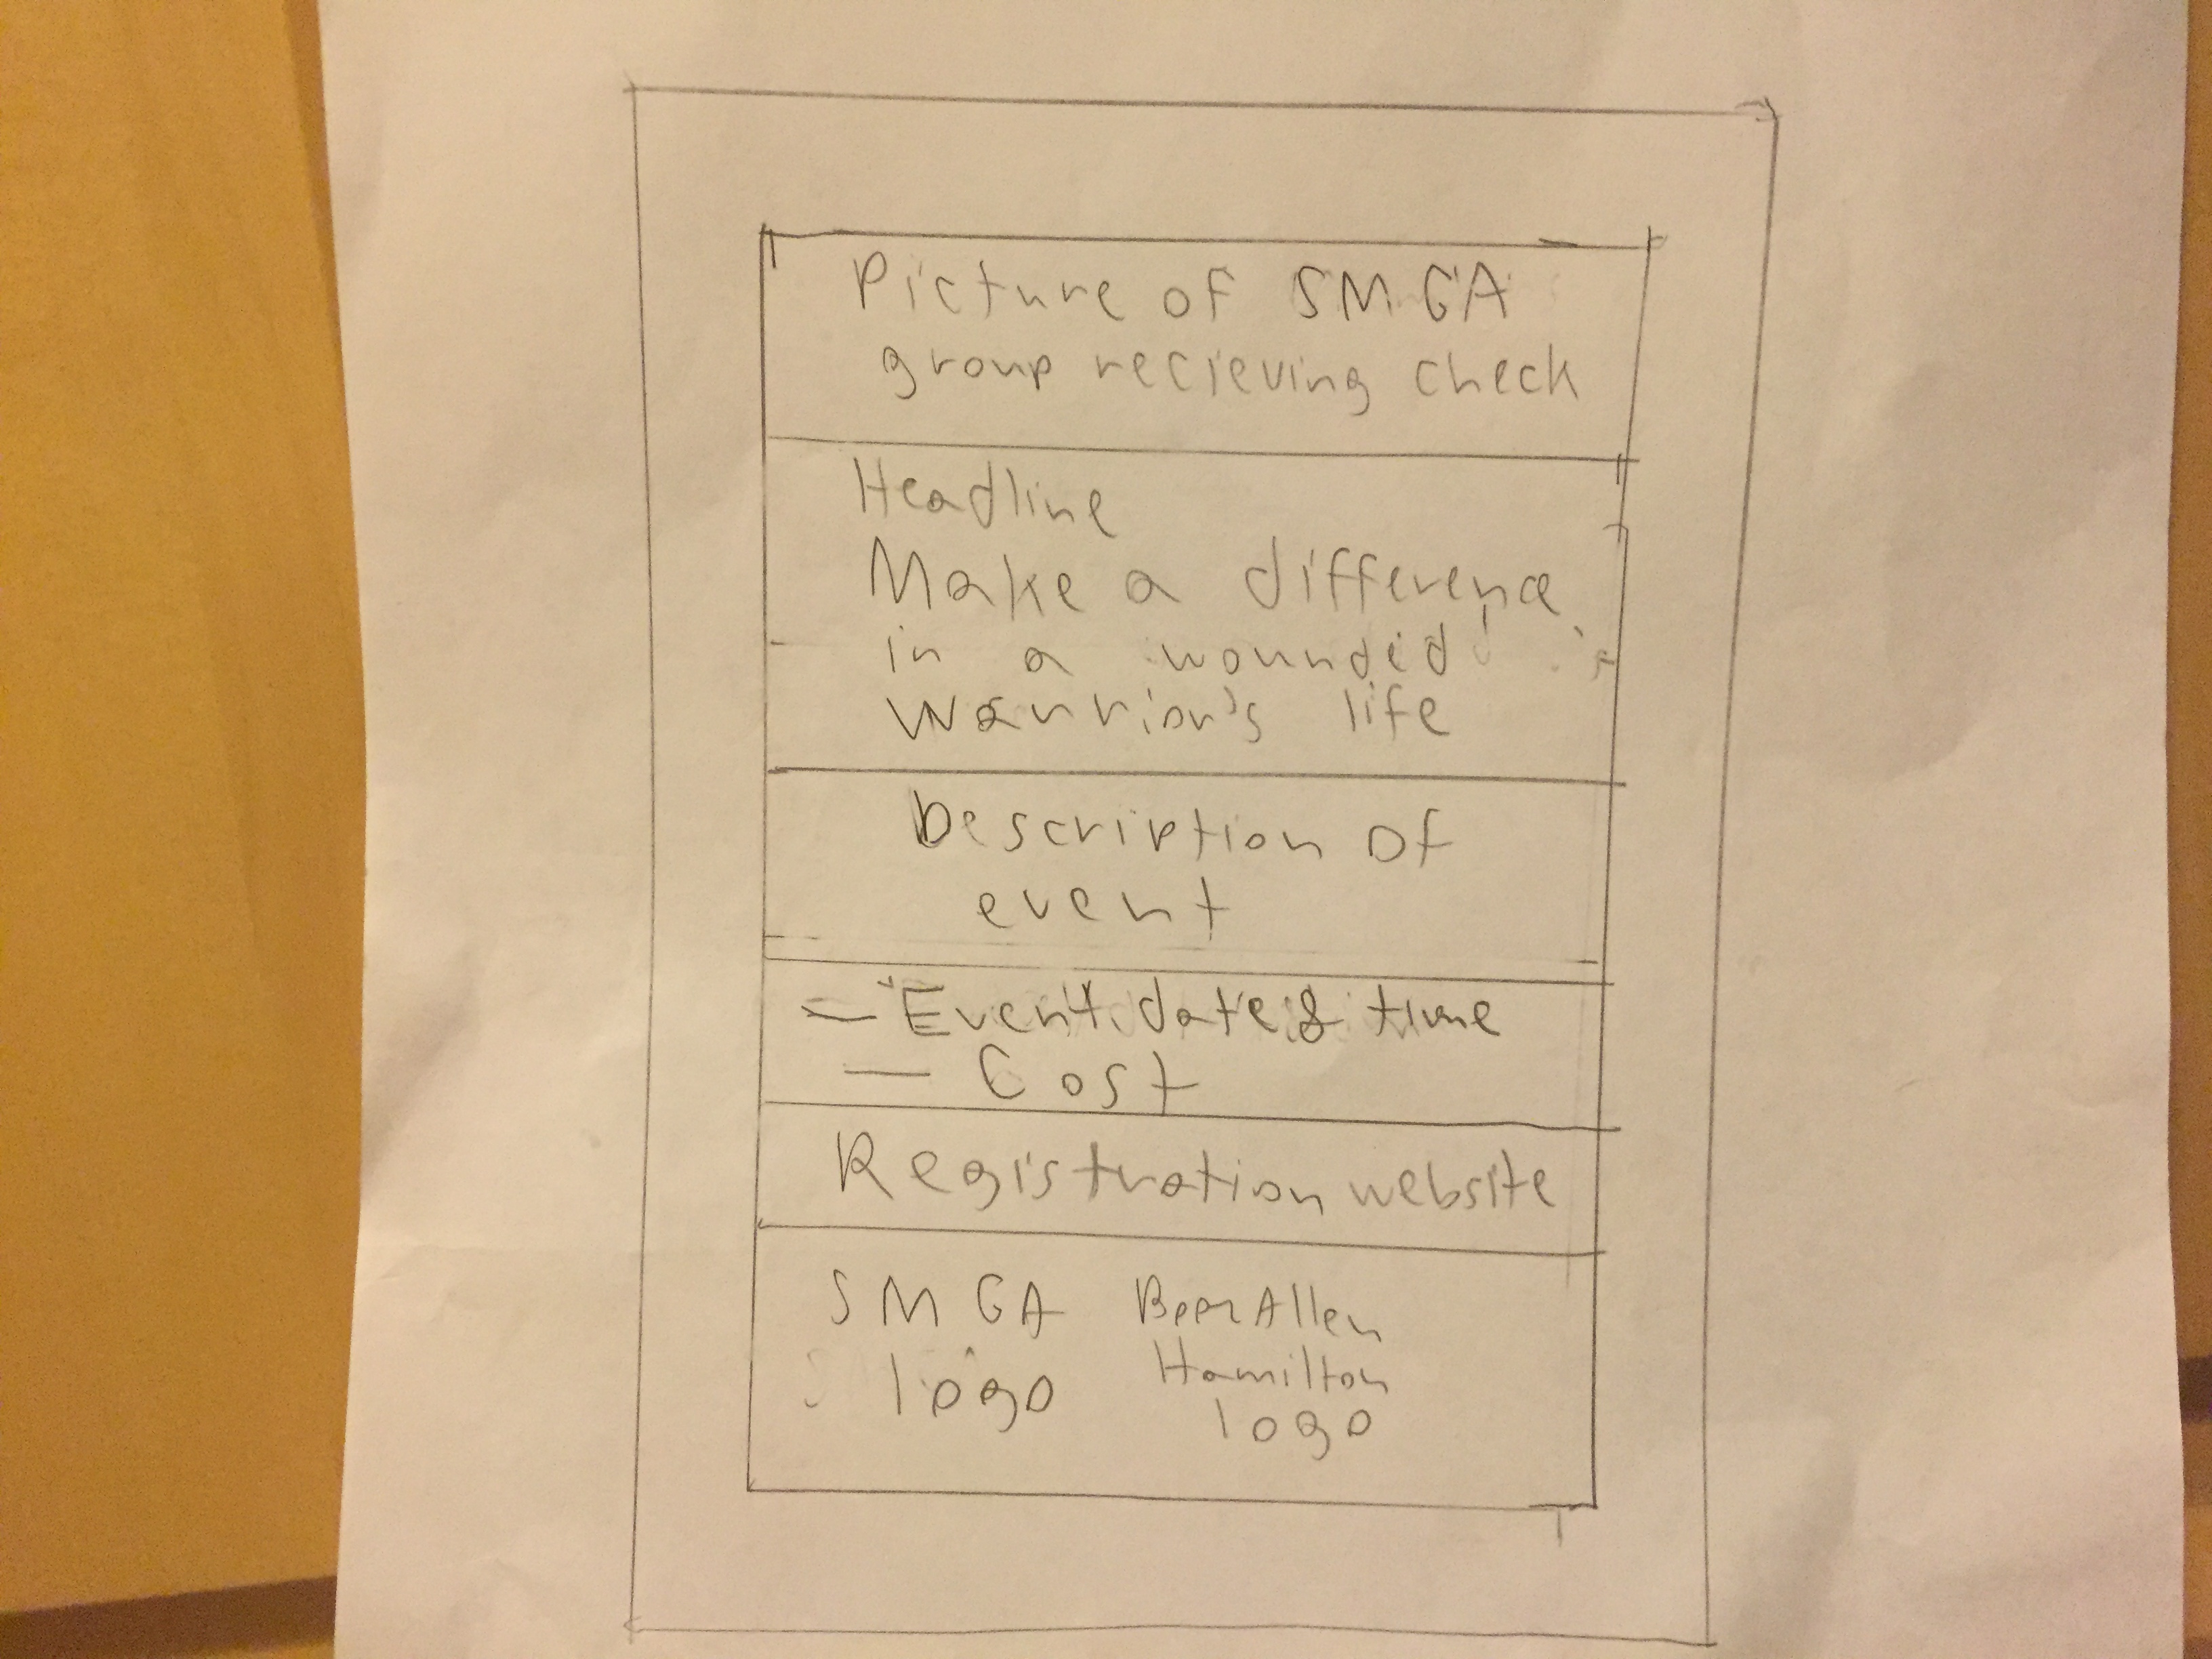 Picture of SMGA
group recieving check
Headline
Make a difference
in a wounded
Warrior's life
Description of
event
- Event date & time
- Cost
Registration website
SMGA
logo
Allen
Hamilton
logo